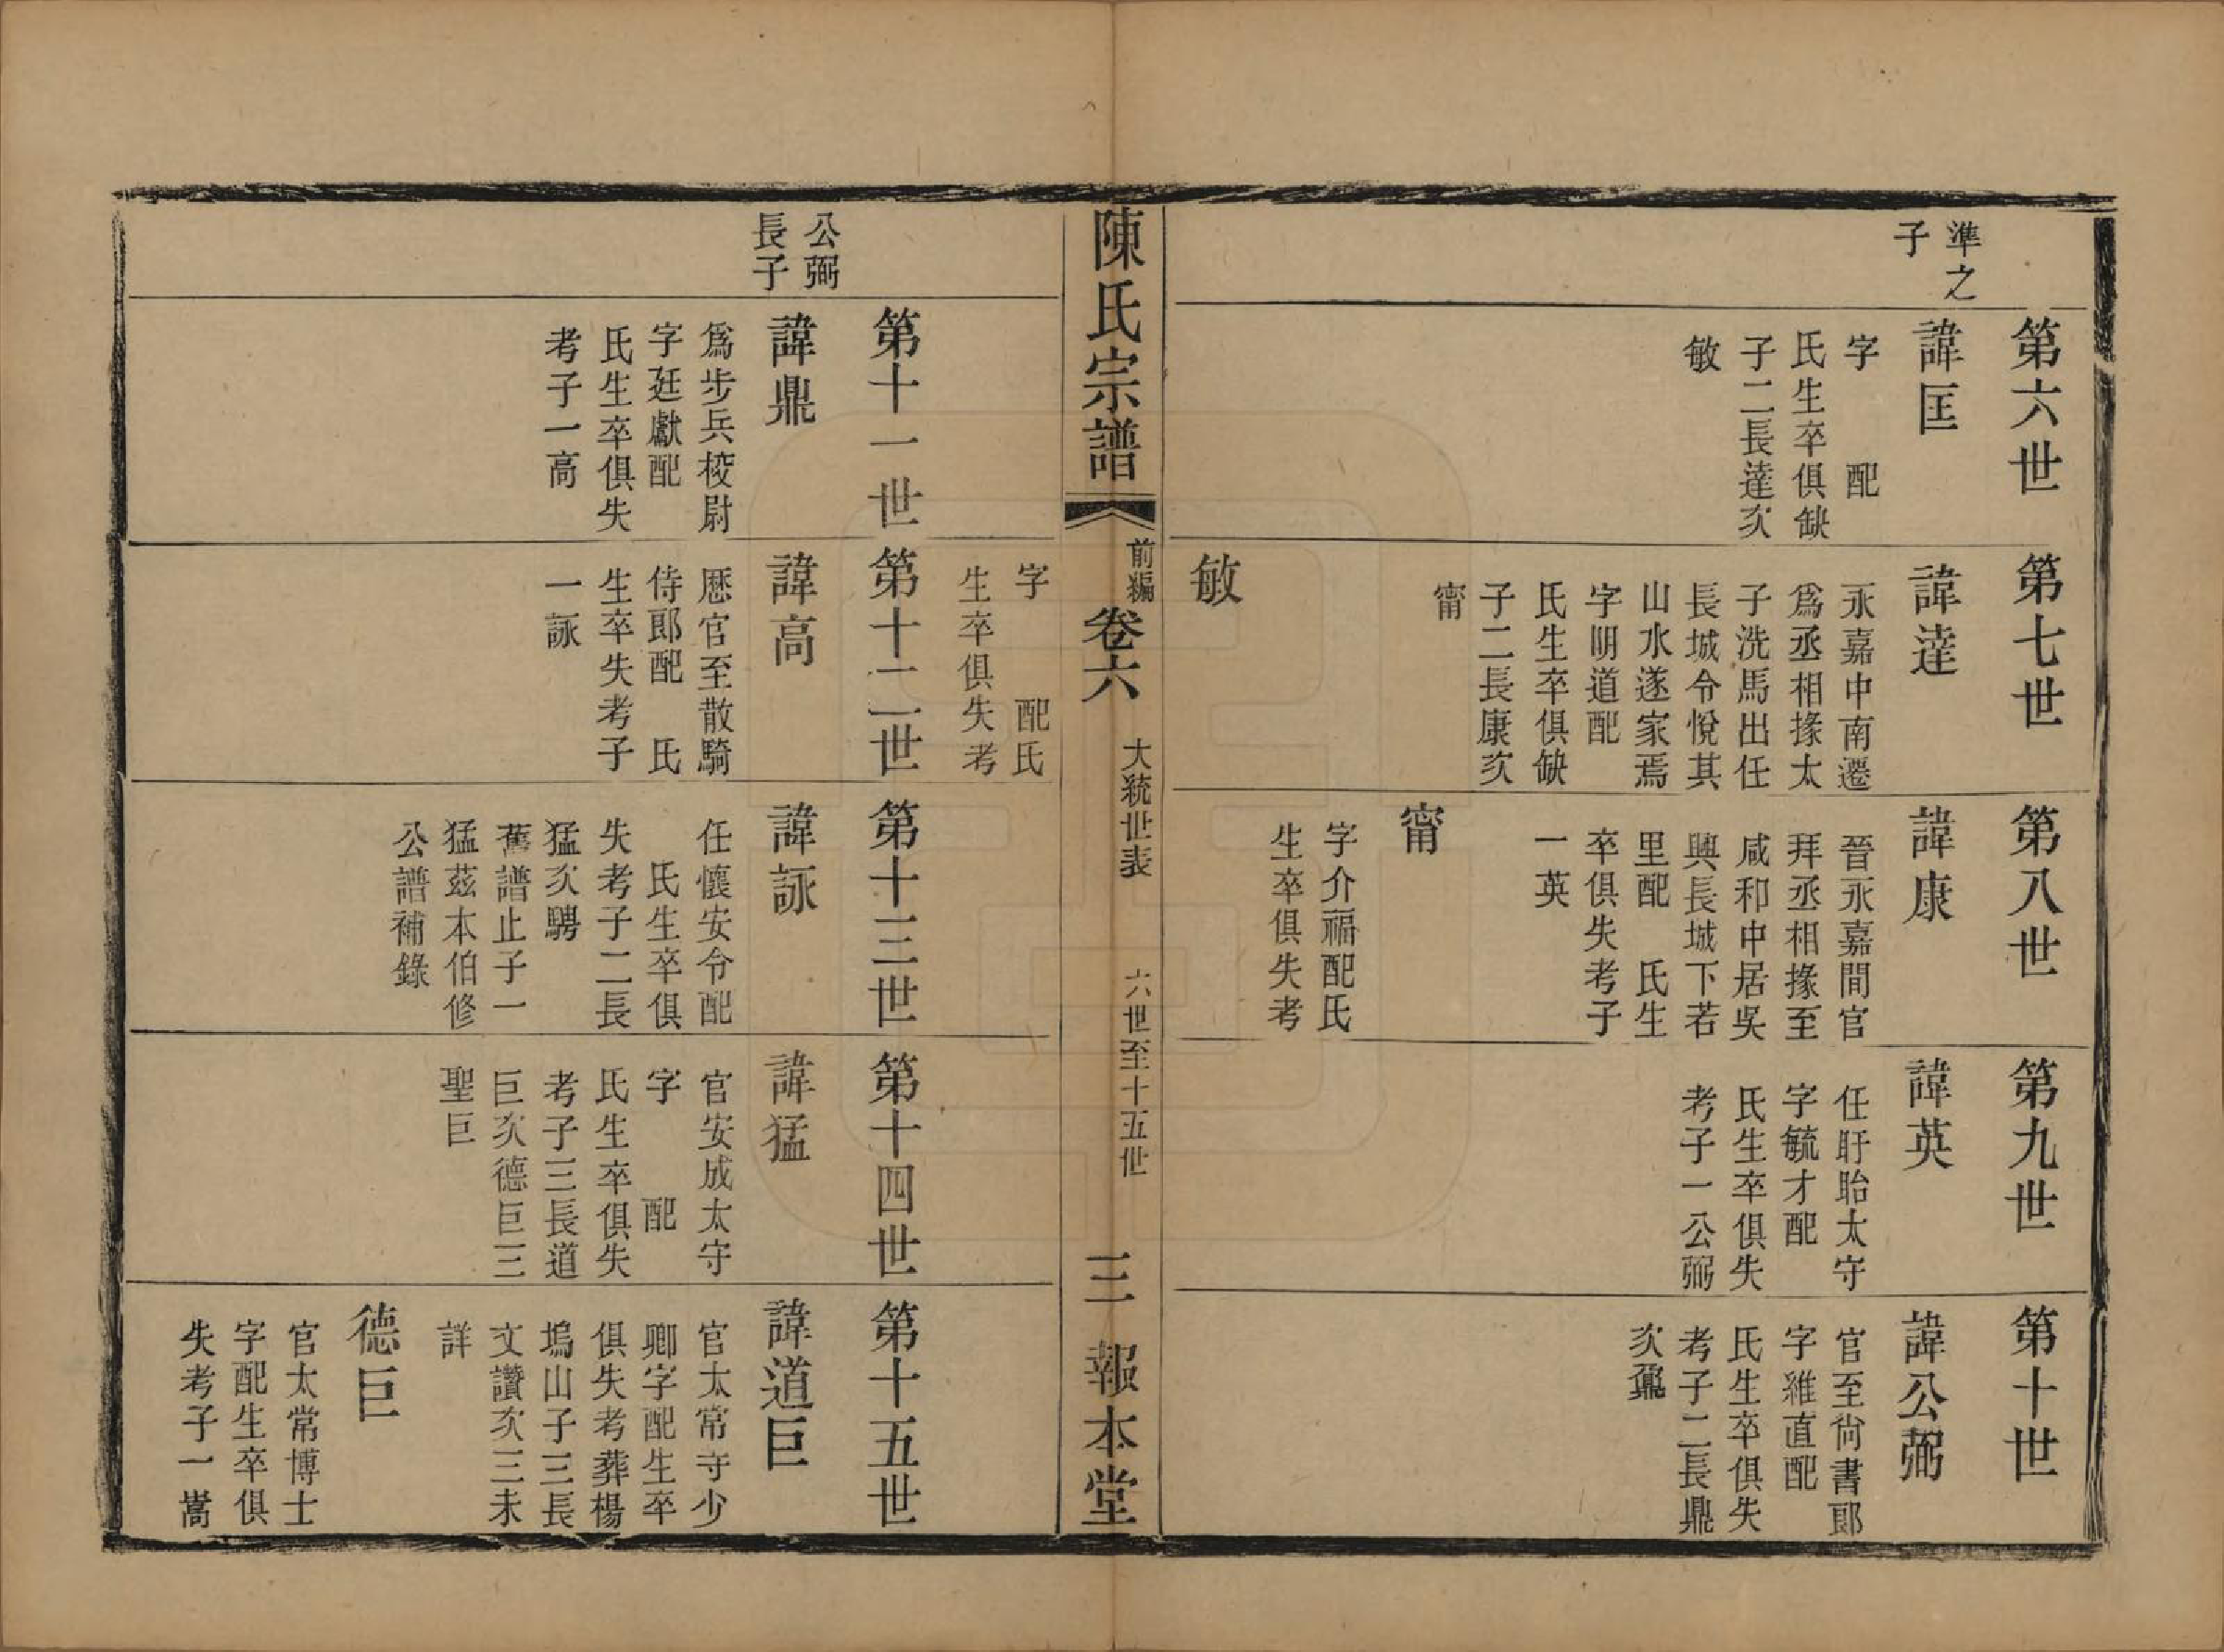 準之
子
第六世
諱匡
字　配
氏生卒俱缺
子二長達次
敏
第七世
諱達
永嘉中南遷
爲丞相掾太
子洗馬出任
長城令悅其
山水遂家焉
字明道配
氏生卒俱缺
子二長康次
甯
敏
字　配氏
生卒俱失考
第八世
諱康
晉永嘉間官
拜丞相掾至
咸和中居吳
興長城下若
里配　氏生
卒俱失考子
一英
甯
字介福配氏
生卒俱失考
第九世
諱英
任盱眙太守
字毓才配
氏生卒俱失
考子一公弼
第十世
諱公弼
官至尙書郞
字維直配
氏生卒俱失
考子二長鼎
次鼐
陳氏宗譜
前編
卷六
大統世表
六世至十五世
三
報本堂
公弼
長子
第十一世
諱鼎
爲步兵校尉
字廷獻配
氏生卒俱失
考子一高
第十二世
諱高
歷官至散騎
侍郞配　氏
生卒失考子
一詠
第十三世
諱詠
任懷安令配
　氏生卒俱
失考子二長
猛次騁
舊譜止子一
猛茲本伯修
公譜補錄
第十四世
諱猛
官安成太守
字　配
氏生卒俱失
考子三長道
巨次德巨三
聖巨
第十五世
諱道巨
官太常寺少
卿字配生卒
俱失考葬楊
塢山子三長
文讚次三未
詳
德巨
官太常博士
字配生卒俱
失考子一嵩